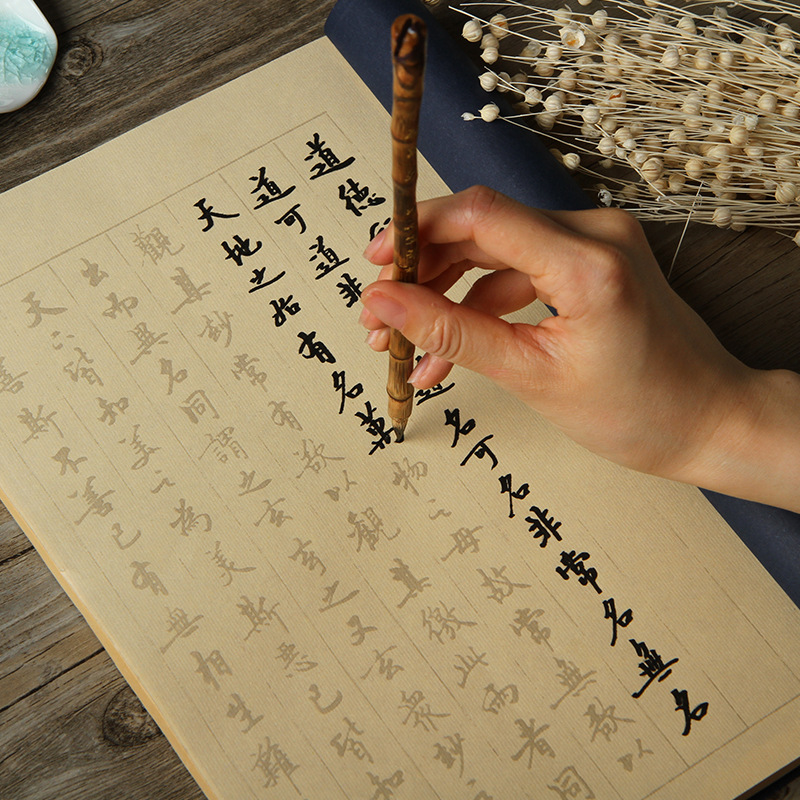 道德
道可道非道名可名非常名無名
天地之始有名萬物〻母故常無欲以
觀其妙常有欲以觀其徼此兩者同
出而異名同謂之玄玄之又玄衆妙
天下皆知美〻為美斯惡已皆知
善斯不善已有無相生難